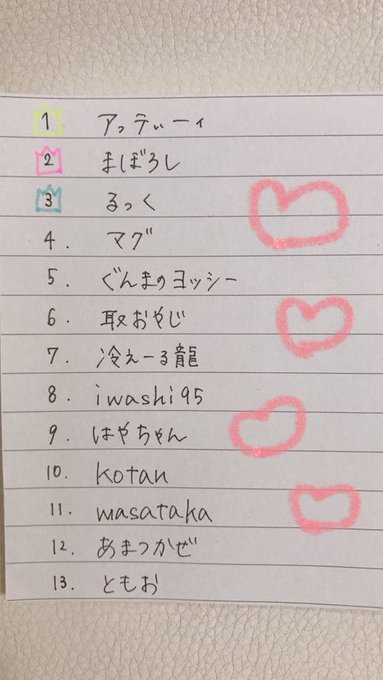 1 アッティーィ
2 まぼろし
3 るっく
4. マグ
5. ぐんまのヨッシー
6. 取おやじ
7. 冷えーる龍
8. iwashi95
9. はやちゃん
10. kotan
11. masataka
12. あまつかぜ
13. ともお